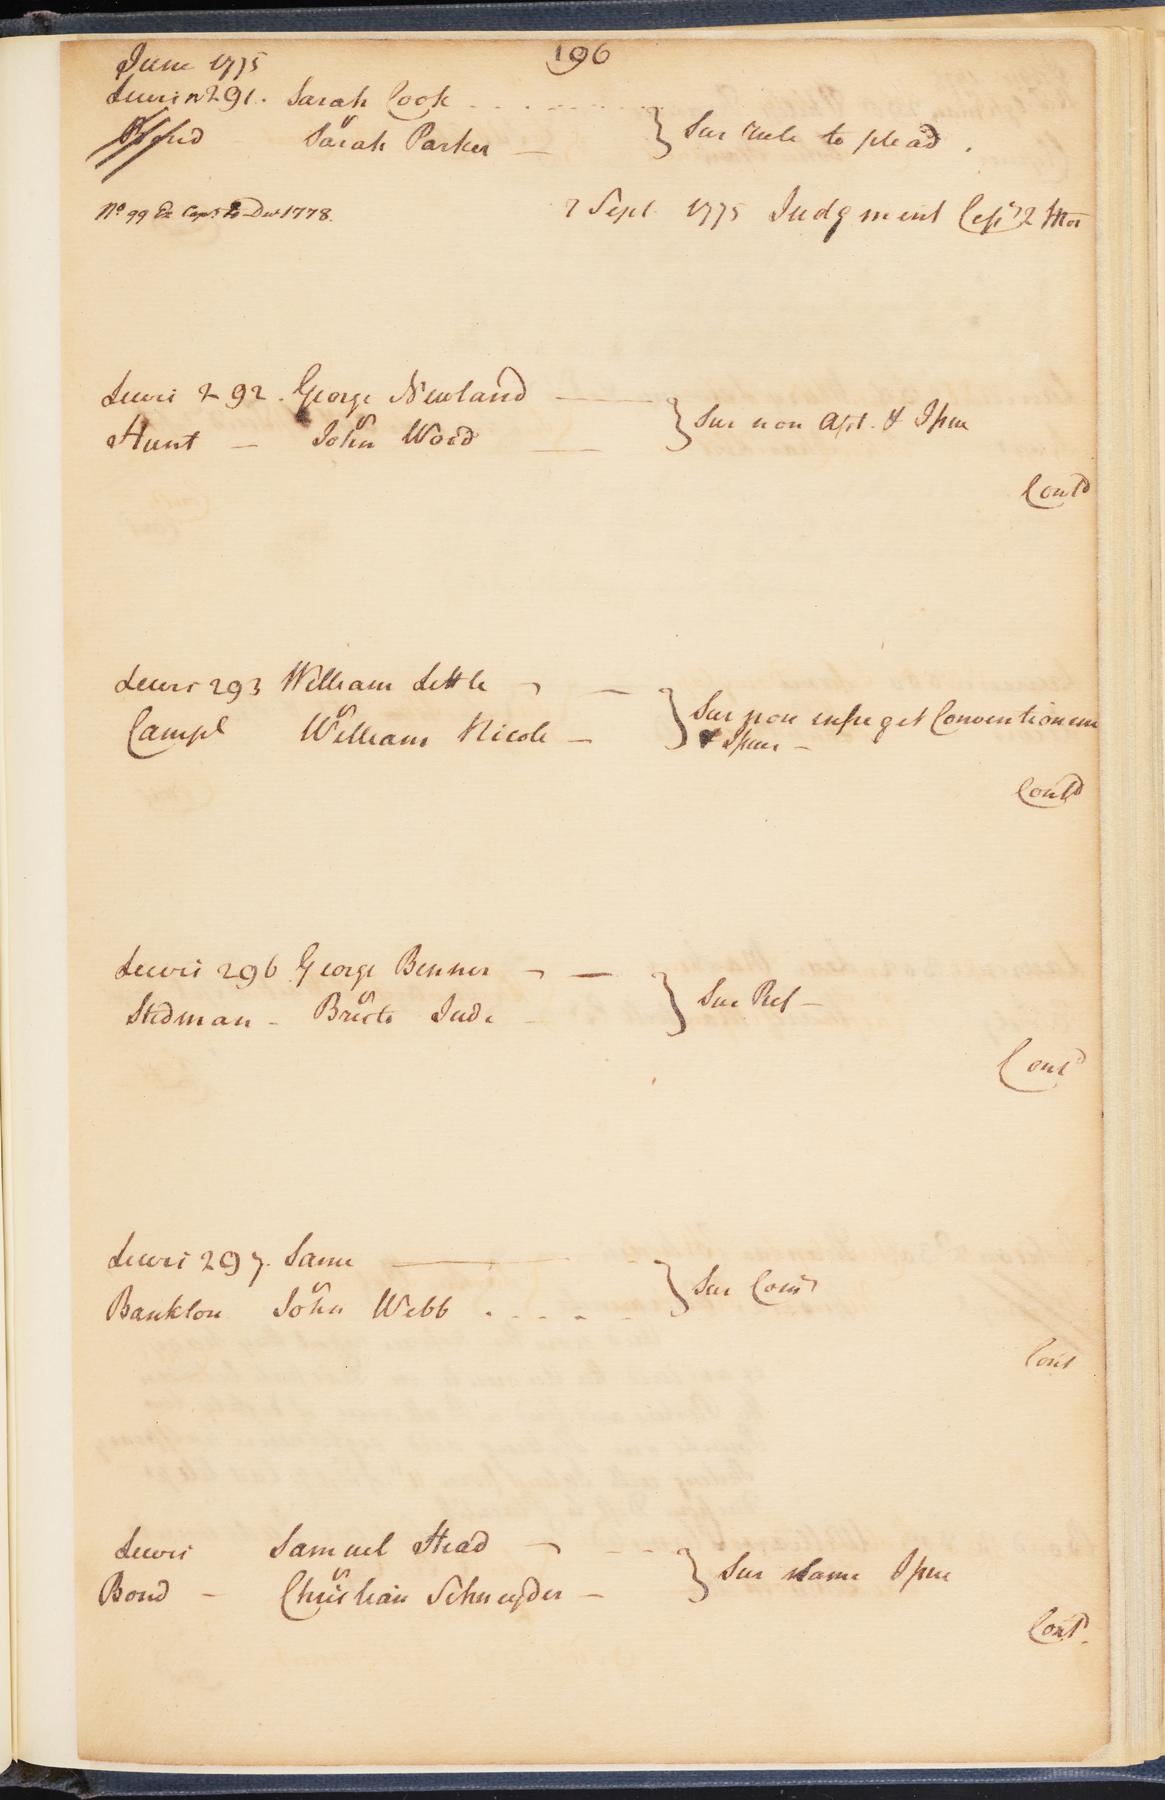 196
June 1775
Lewis n 291. Sarah Cook
vs
Sarah Parker
} Sur rule to plead.
No 99 Ex Caps to Decr 1778.
7 Sept 1775 Judgment
Lewis 292. George Newland
vs
Hunt — John Wood
} Sur non Asst. & Issue
Contd
Lewis 293 William Little
vs
Campl William Nicole
} Sur non infreget Conventionem
& Issue
Contd
Lewis 296 George Benner
vs
Stedman - Jude
} Sur Ref
Contd
Lewis 297. Same
vs
Bankson John Webb
} Sur
Cont
Lewis Samuel Head
vs
Bond — Christian Schnyder
} Sur Same Issue
Contd.